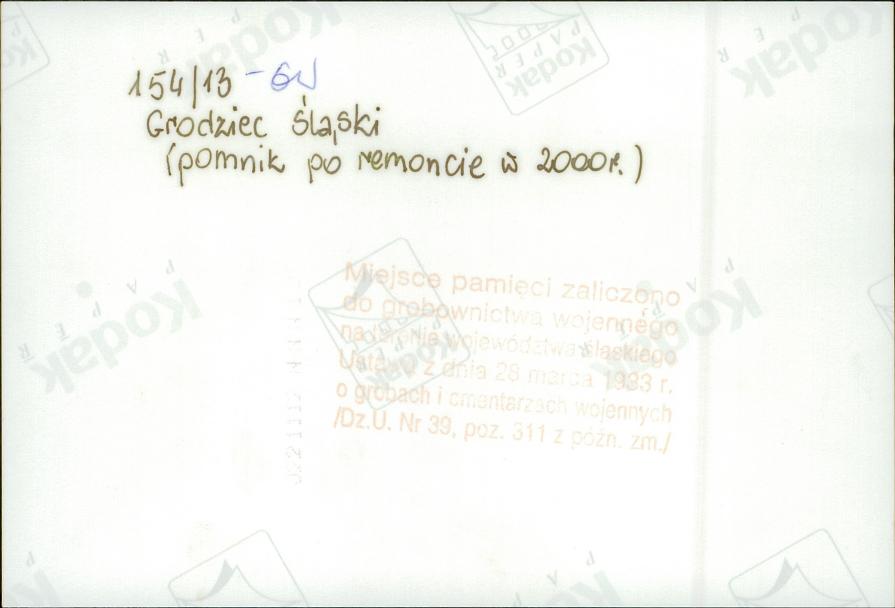 154/13 - GW
Grodziec Śląski
(pomnik po remoncie w 2000r.)
Miejsce pamięci zaliczono
do grobownictwa wojennego
na terenie województwa śląskiego
Ustawa z dnia 28 marca 1933 r.
o grobach i cmentarzach wojennych
/Dz.U. Nr 39, poz. 311 z późn. zm./
Kodak
PAPER
Kodak
PAPER
Kodak
PAPER
Kodak
Kodak